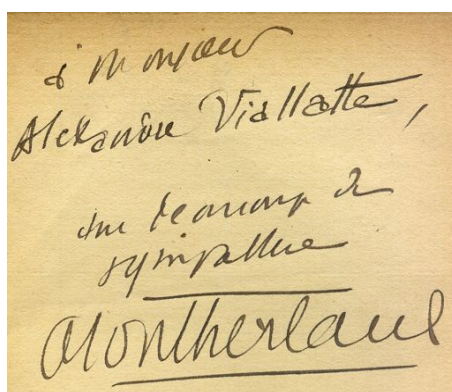 à Monsieur
Alexandre Vialatte,
avec beaucoup de
sympathie
Montherlant